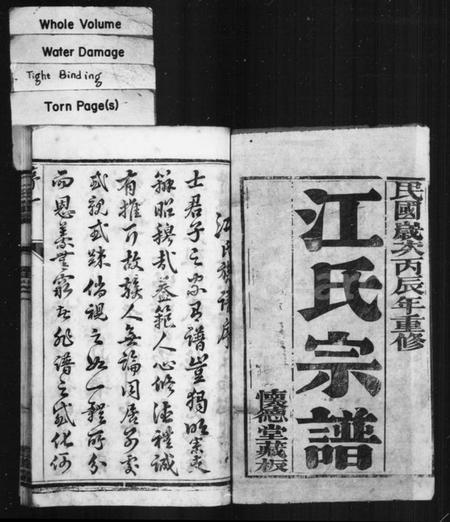 Whole Volume
Water Damage
Tight Binding
Torn Page(s)
民國歲次丙辰年重修
江氏宗譜
懷德堂藏板
江氏族譜序
士君子之家有譜豈獨明宗支
昭穆哉蓋範人心修德禮誠
有推
故族人無論同居
或親或疎倘視之如一體所分
而恩義無窮
非譜之感化何